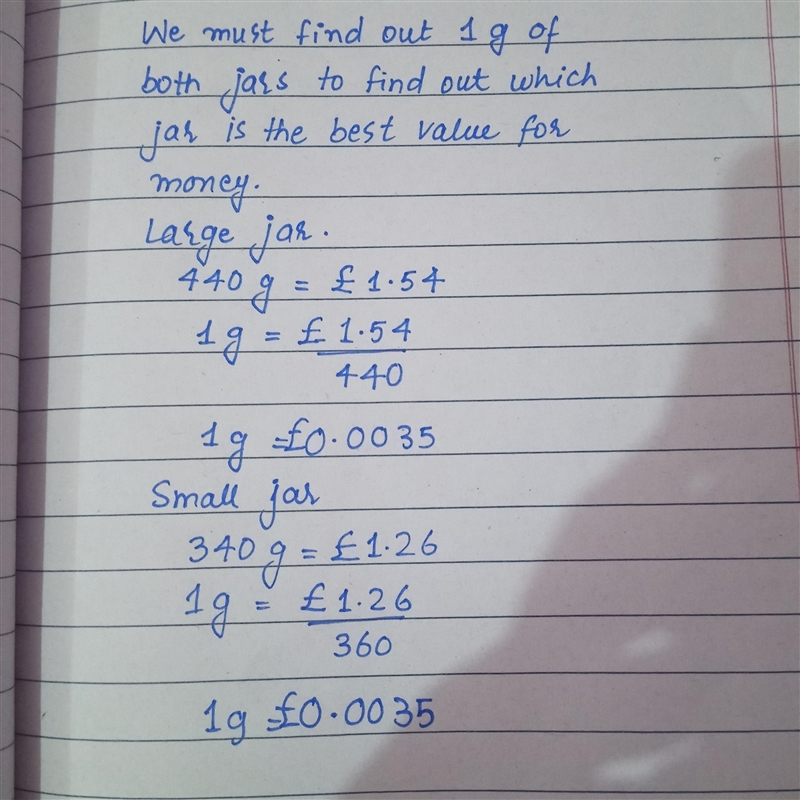 We must find out 1 g of
both jars to find out which
jar is the best value for
money.
Large jar.
440 g = £ 1.54
1 g = £ 1.54
440
1 g = £0.0035
Small jar
340 g = £ 1.26
1 g = £ 1.26
360
1 g = £0.0035